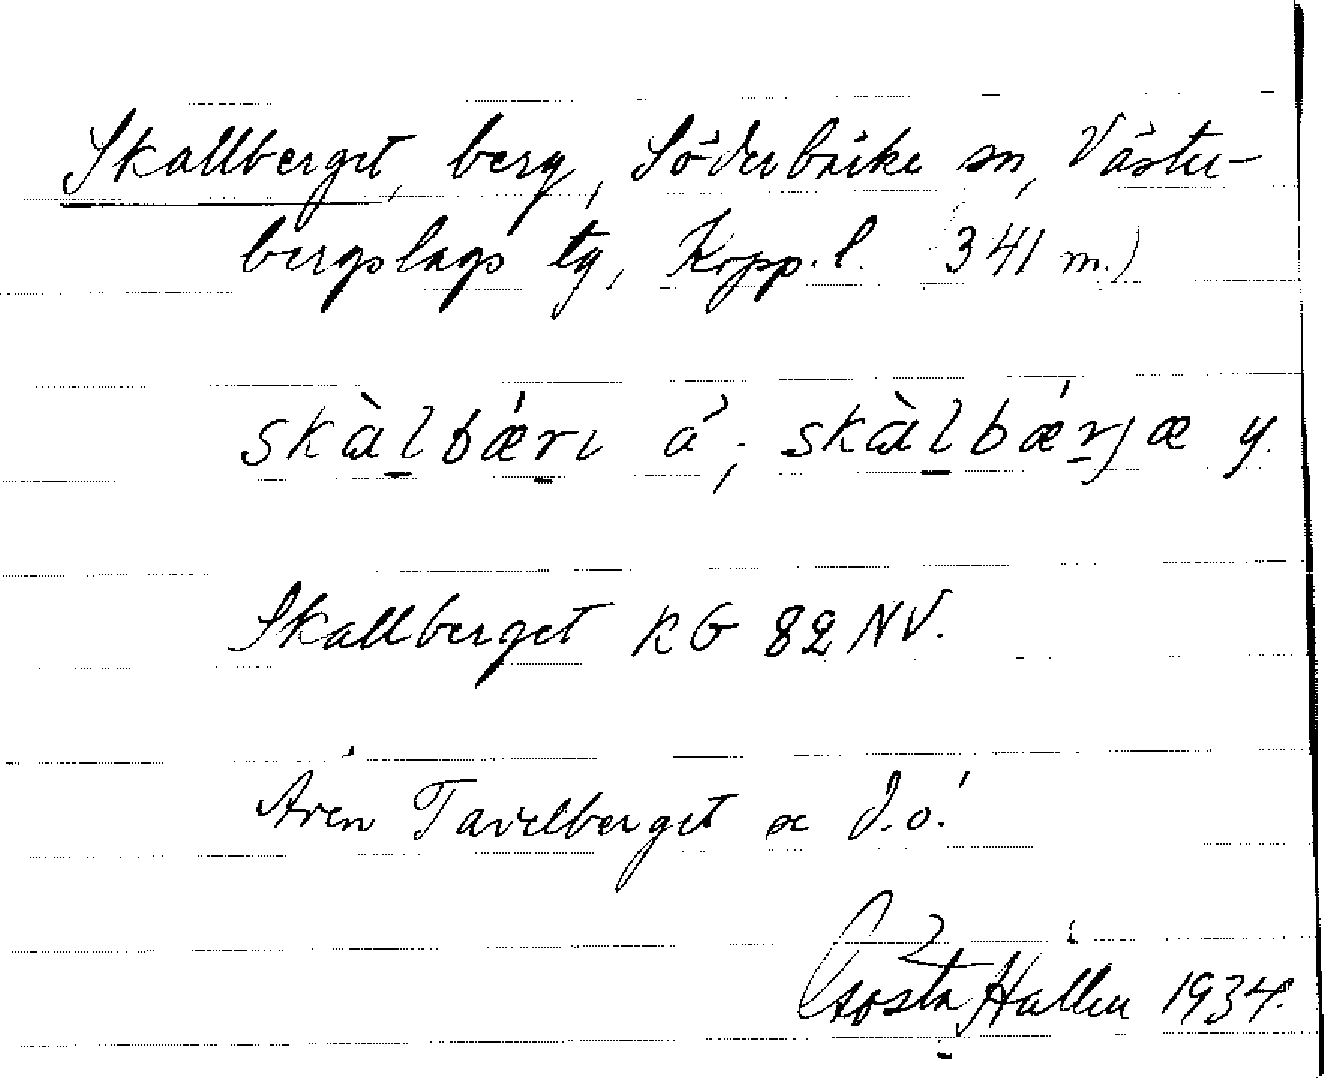 Skallberget, berg, Söderbärke sn, Väster-
bergslags tg, Kopp. l. (341 m.)
skàlbǽrı ä́; skàlbǽrjæ y.
Skallberget KG 82 NV.
Även Tavelberget se d.o!
Gösta Hallén 1934.